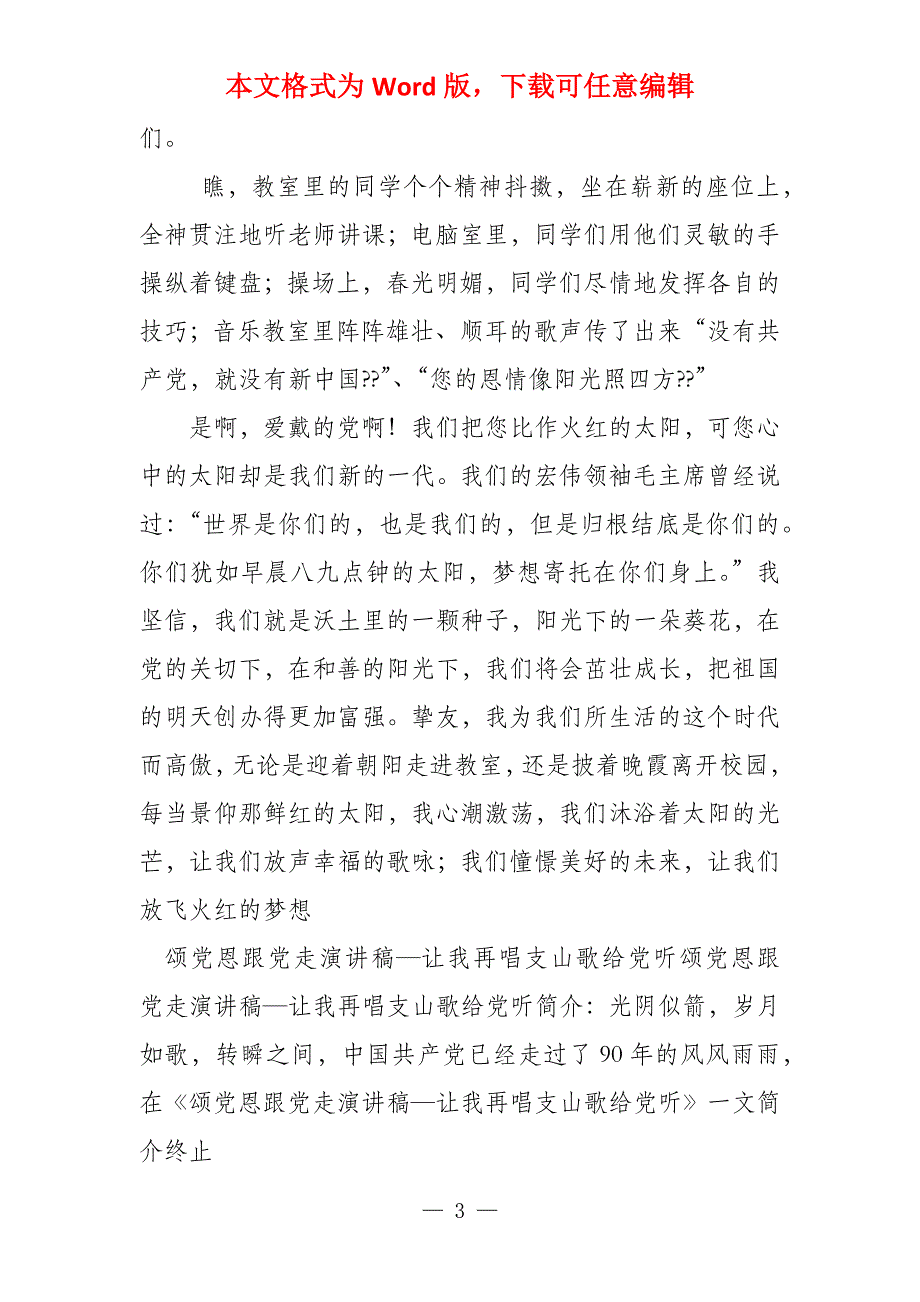 本文格式为 Word 版，下载可任意编辑
们。
瞧，教室里的同学个个精神抖擞，坐在崭新的座位上，
全神贯注地听老师讲课；电脑室里，同学们用他们灵敏的手
操纵着键盘；操场上，春光明媚，同学们尽情地发挥各自的
技巧；音乐教室里阵阵雄壮、顺耳的歌声传了出来“没有共
产党，就没有新中国??”、“您的恩情像阳光照四方??”
是啊，爱戴的党啊！我们把您比作火红的太阳，可您心
中的太阳却是我们新的一代。我们的宏伟领袖毛主席曾经说
过：“世界是你们的，也是我们的，但是归根结底是你们的。
你们犹如早晨八九点钟的太阳，梦想寄托在你们身上。”我
坚信，我们就是沃土里的一颗种子，阳光下的一朵葵花，在
党的关切下，在和善的阳光下，我们将会茁壮成长，把祖国
的明天创办得更加富强。挚友，我为我们所生活的这个时代
而高傲，无论是迎着朝阳走进教室，还是披着晚霞离开校园，
每当景仰那鲜红的太阳，我心潮激荡，我们沐浴着太阳的光
芒，让我们放声幸福的歌咏；我们憧憬美好的未来，让我们
放飞火红的梦想
颂党恩跟党走演讲稿—让我再唱支山歌给党听颂党恩跟
党走演讲稿—让我再唱支山歌给党听简介：光阴似箭，岁月
如歌，转瞬之间，中国共产党已经走过了 90 年的风风雨雨，
在《颂党恩跟党走演讲稿—让我再唱支山歌给党听》一文简
介终止
— 3 —